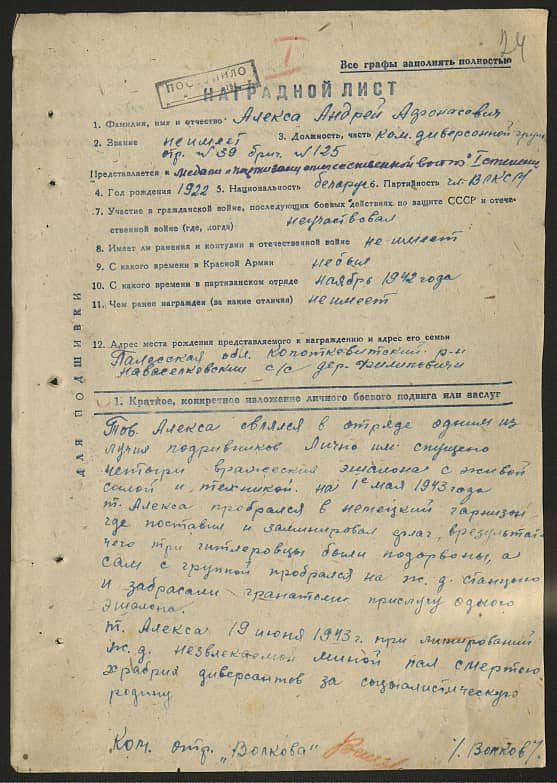 24
I
Все графы заполнять полностью
ПОСТУПИЛО
НАГРАДНОЙ ЛИСТ
1. Фамилия, имя и отчество Алекса Андрей Афонасович
2. Звание не имеет 3. Должность, часть ком. диверсонной групы
отр. №39 бриг. №125
Представляется к медали "партизану отечественной войны" I степени
4. Год рождения 1922 5. Национальность беларус 6. Партийность чл. ВЛКСМ
7. Участие в гражданской войне, последующих боевых действиях по защите СССР и отече-
ственной войне (где, когда) неучаствовал
8. Имеет ли ранения и контузии в отечественной войне не имеет
9. С какого времени в Красной Армии не был
10. С какого времени в партизанском отряде ноябрь 1942 года
11. Чем ранее награжден (за какие отличия) не имеет
12. Адрес места рождения представляемого к награждению и адрес его семьи
Палесская обл. Копоткевитский р-н
Наваселковский с/с дер. Филиповичи
ДЛЯ ПОДШИВКИ
1. Краткое, конкретное изложение личного боевого подвига или заслуг
Тов. Алекса овлялся в отряде одним из
лучих подривников Лично им спущено
четыри вражеских эшалона с живой
силой и техникой. на 1е мая 1943 года
т. Алекса пробрался в немецкий гарнизон
где поставил и заминировал флаг, врезультати
чего три гитлеровцы были подорвоны, а
сам с групой пробрался на ж. д. станцыю
и забрасали гранатами прислугу одного
эшалона.
т. Алекса 19 июня 1943 г. при минировании
ж. д. незвлекаемой миной пал смертю
храбрих диверсантов за социалистическую
родину
Ком. отр. "Волкова" /. Волков/